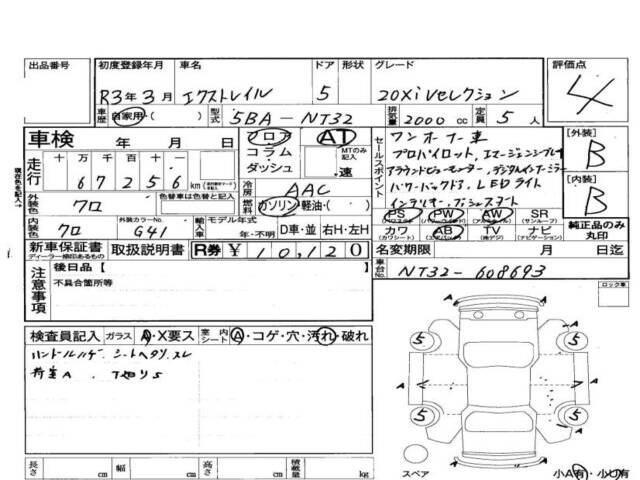 出品番号
初度登録年月 車名 ドア 形状 グレード 評価点
R3年3月 エクストレイル 5 20Xi Vセレクション 4
車歴 自家用・( ) 型式 5BA-NT32 排気量 2000 cc 定員 5 人
車検 年 月 日
フロア AT
コラム・ダッシュ MTのみ記入 速
セールスポイント ワンオーナー車
プロパイロット、エマージェンシーブレーキ
アラウンドビューモニター、デジタルインナーミラー
パワーバックドア、LEDライト
インテリキー、プッシュスタート
[外装] B
[内装] B
走行 十 万 千 百 十 一
67256 km
冷房 AAC
燃料 ガソリン・軽油・( )
外装色 クロ 色替車は色替と記入
内装色 クロ 外装カラーNo. G41 輸入車 モデル年式 年・不明 D車・並 右H・左H
PS PW AW SR
(パワステ) (パワーウインド) (アルミホイル) (サンルーフ)
カワ AB TV ナビ
(カワシート) (エアバッグ) (純デジ) (ナビゲーション)
純正品のみ丸印
新車保証書 ディーラー捺印あるもの 取扱説明書 R券 ¥ 10,120
名変期限 月 日迄
注意事項 後日品【 】
不具合箇所等
車台No. NT32-608693
ロック車
検査員記入 ガラス A・X要ス 室内シート A・コゲ・穴・汚れ・破れ
ハンドルハゲ シートヘタリ.スレ
荷室A
5 5
5 5
A A A A A A
長さ cm 幅 cm 高さ cm 積載量 kg
スペア 小A有・小U有